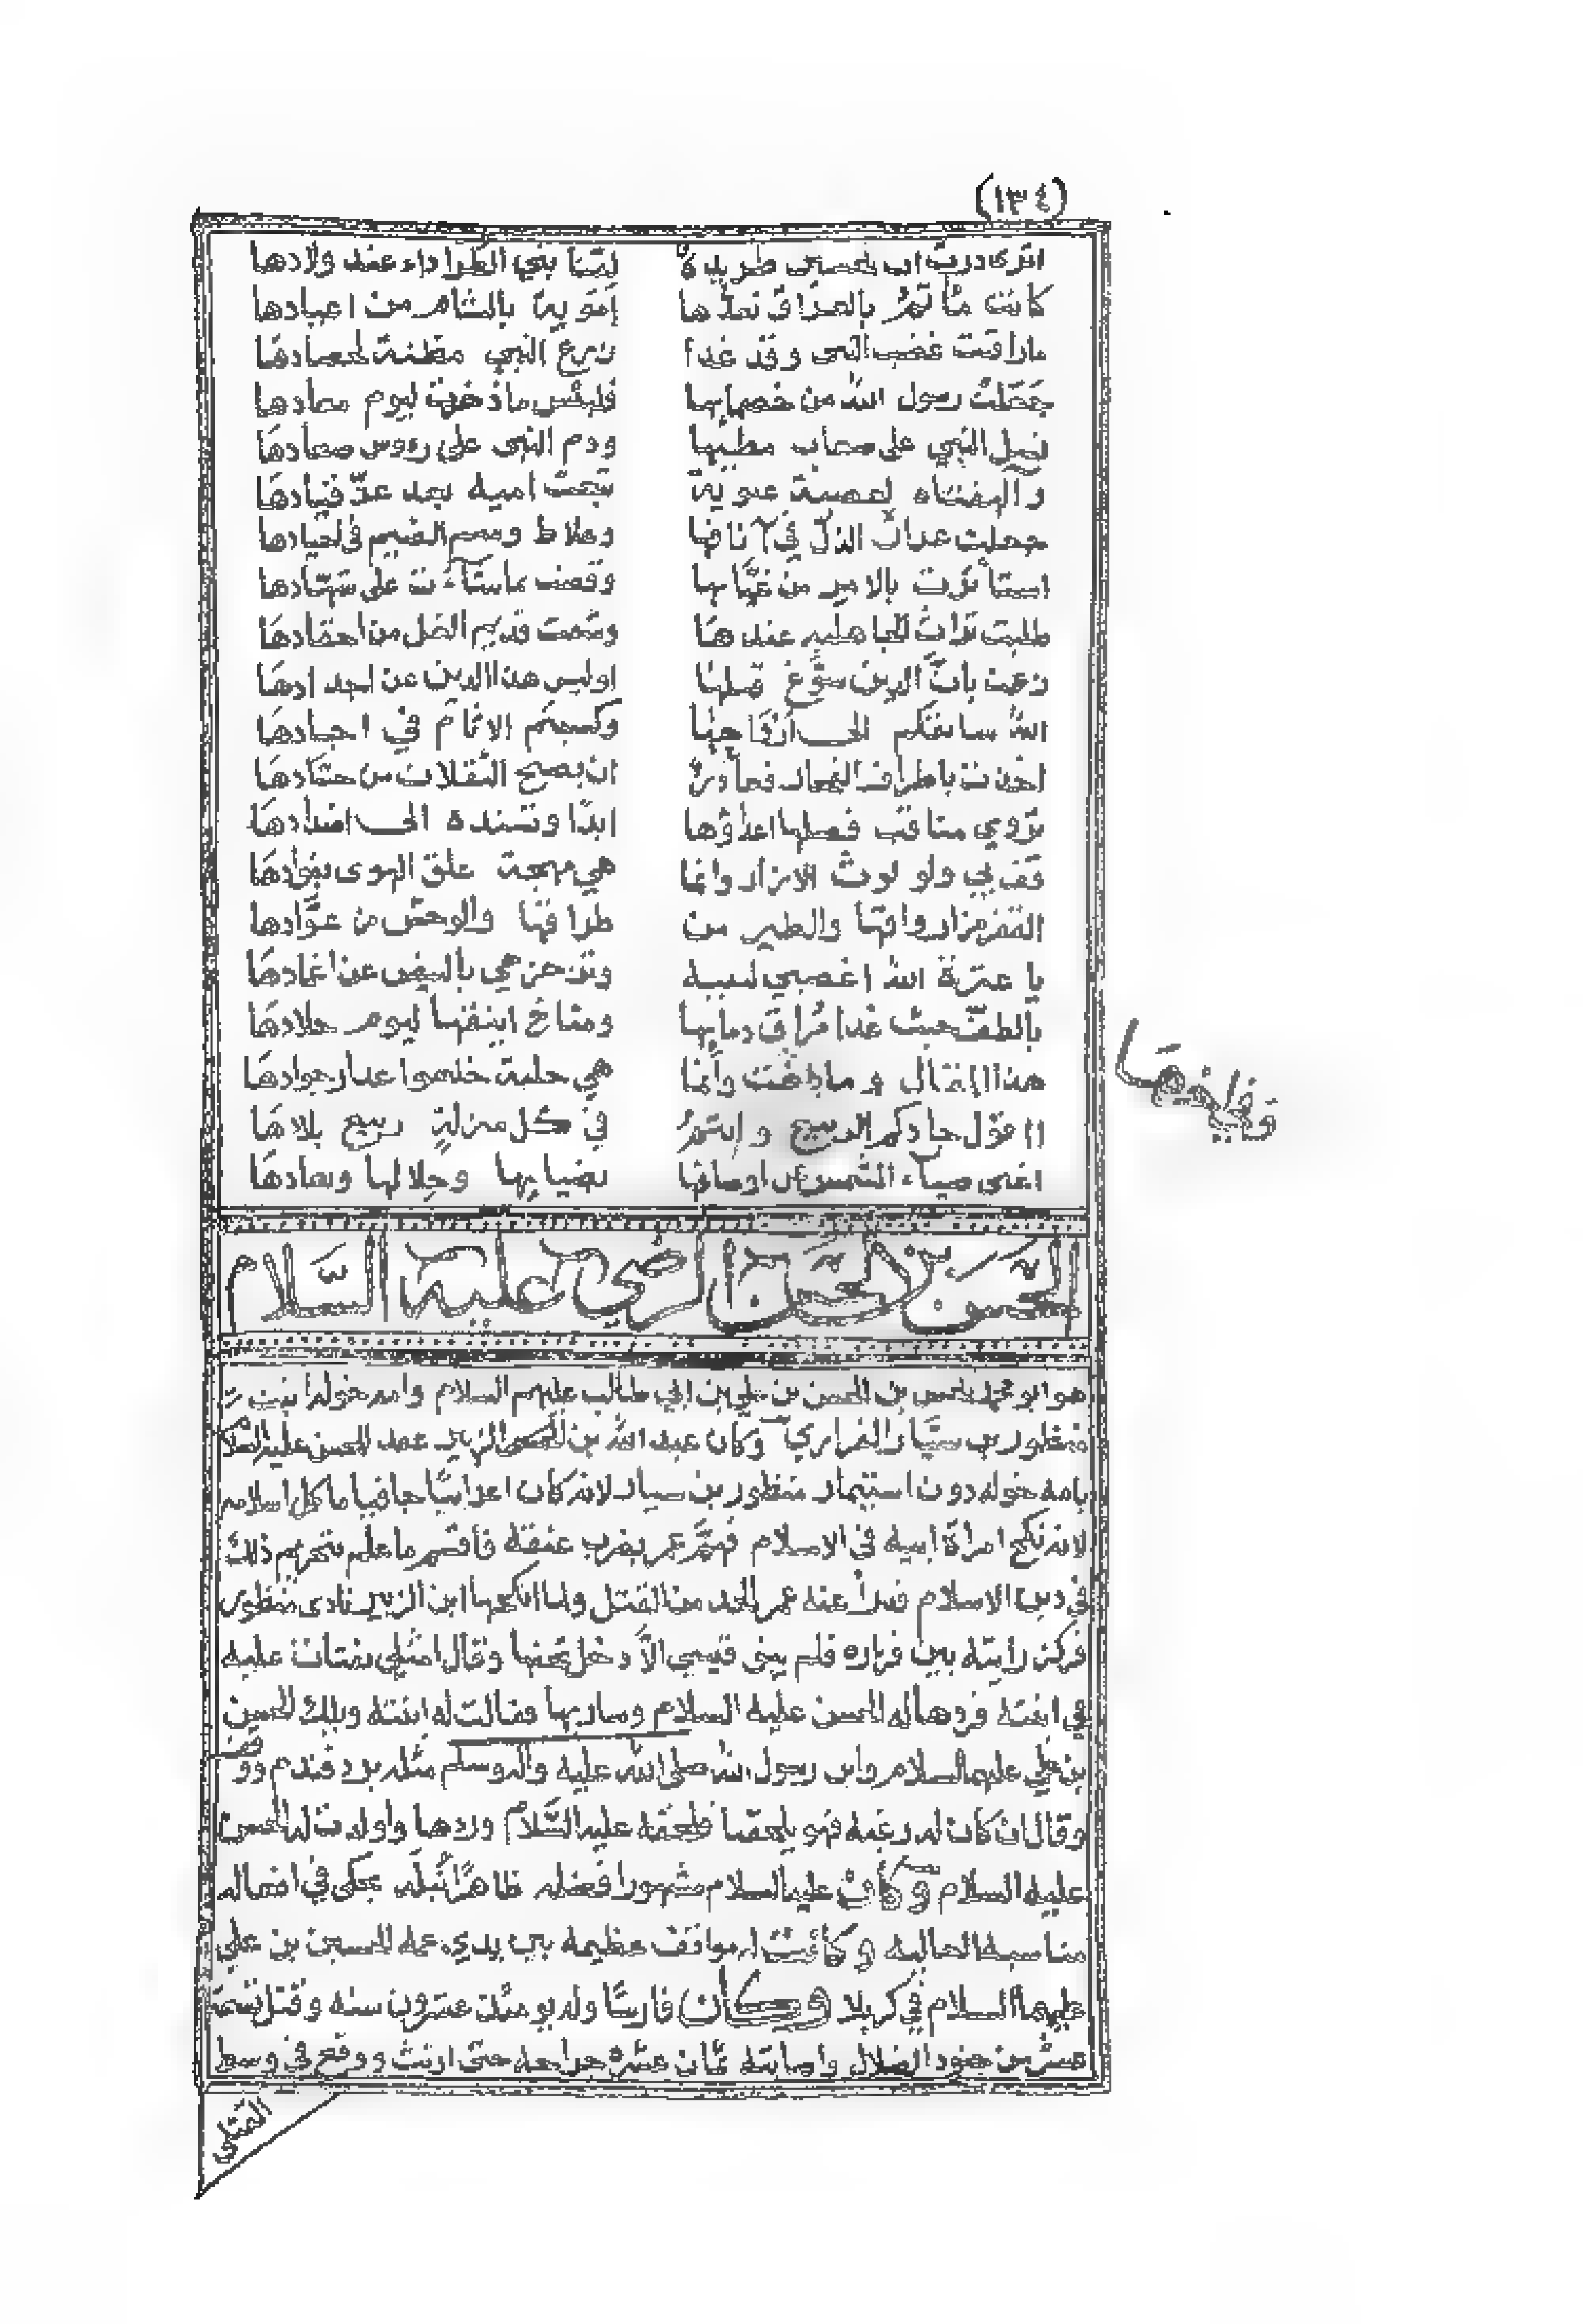 (١٣٤)
اترى درت ان الحسين طريدة لقنا بني الطرداء عند ولادها
كانت مآتم بالعراق تعدها اموية بالشام من اعيادها
ماراقبت غضب النبي وقد غدا زرع النبي مظنة لحصادها
جعلت رسول الله من خصمائها فلبئس ماذخرت ليوم معادها
نسل النبي على صعاب مطيها ودم النبي على رؤوس صعادها
والهفتاه لعصبة علوية تبعت امية بعد عز قيادها
جعلت عران الذل في آنافها وعلاط وسم الضيم في اجيادها
استأثرت بالامر عن غيابها وقضت بماشاءت على شهادها
طلبت تراث الجاهلية عندها وشفت قديم الغل من احقادها
زعمت بان الدين سوغ قتلها اوليس هذا الدين عن اجدادها
الله سابقكم الى ارواحها وكسبتم الاثام في اجسادها
اخذت باطراف الفخار فعاذر ان يصبح الثقلان من حسادها
تروي مناقب فضلها اعداؤها ابدا وتسنده الى اضدادها
قف بي ولو لوث الازار وانما هي مهجة علق الهوى بفؤادها
القفر من ارواقها والطير من طراقها والوحش من عوادها
يا غيرة الله اغضبي لنبيه وتزحزحي بالبيض عن اغمادها
بالطف حيث غدا مراق دمائها ومناخ اينقها ليوم جلادها
هذا المقال وما بلغت وانما هي حلبة خلعوا عذار جوادها
ااقول جادكم الربيع وانتم في كل منزلة ربيع بلادها
اغنى ضياء الشمس عن اوصافها بضيائها وجلالها وبعادها
وفايضها
الحسن بن الحسن الرضي عليه السلام
هو ابو محمد الحسن بن الحسن بن علي بن ابي طالب عليهم السلام وامه خولة بنت
منظور بن سيار الفزاري وكان عبد الله بن الزبير عقد الحسن عليه السلام
بامه خوله دون استيمار منظور بن سيار لانه كان اعرابيا جافيا ماكل اسلامه
لانه نكح امراة ابيه في الاسلام فهم عمر بضرب عنقه فأقسم ماعلم تحريم ذلك
في دين الاسلام فدرأ عنه عمر الحد من القتل ولما انكحها ابن الزبير نادى منظور
فركز رايته بين فزاره فلم يبق قيسي الا دخل تحتها وقال امثلي يفتات عليه
في ابنته فردها له الحسن عليه السلام وساربها فقالت له ابنته ويلك الحسن
بن علي عليهما السلام وابن رسول الله صلى الله عليه واله وسلم مثله يرد فندم ووقف
وقال ان كان له رغبه فهو يلحقنا فلحقه عليه السلام وردها واولدت له الحسن
عليه السلام وكان عليه السلام مشهورا فضله ظاهرا نبله يحكي في افعاله
مناسبه العاليه وكانت له مواقف عظيمه بين يدي عمه الحسين بن علي
عليهما السلام في كربلا وكان فارسا وله يومئذ عشرون سنه وقتل تسعة
عشر من جنود الضلال واصابته ثمان عشرة جراحه حتى ارتث ووقع في وسط
القتلى